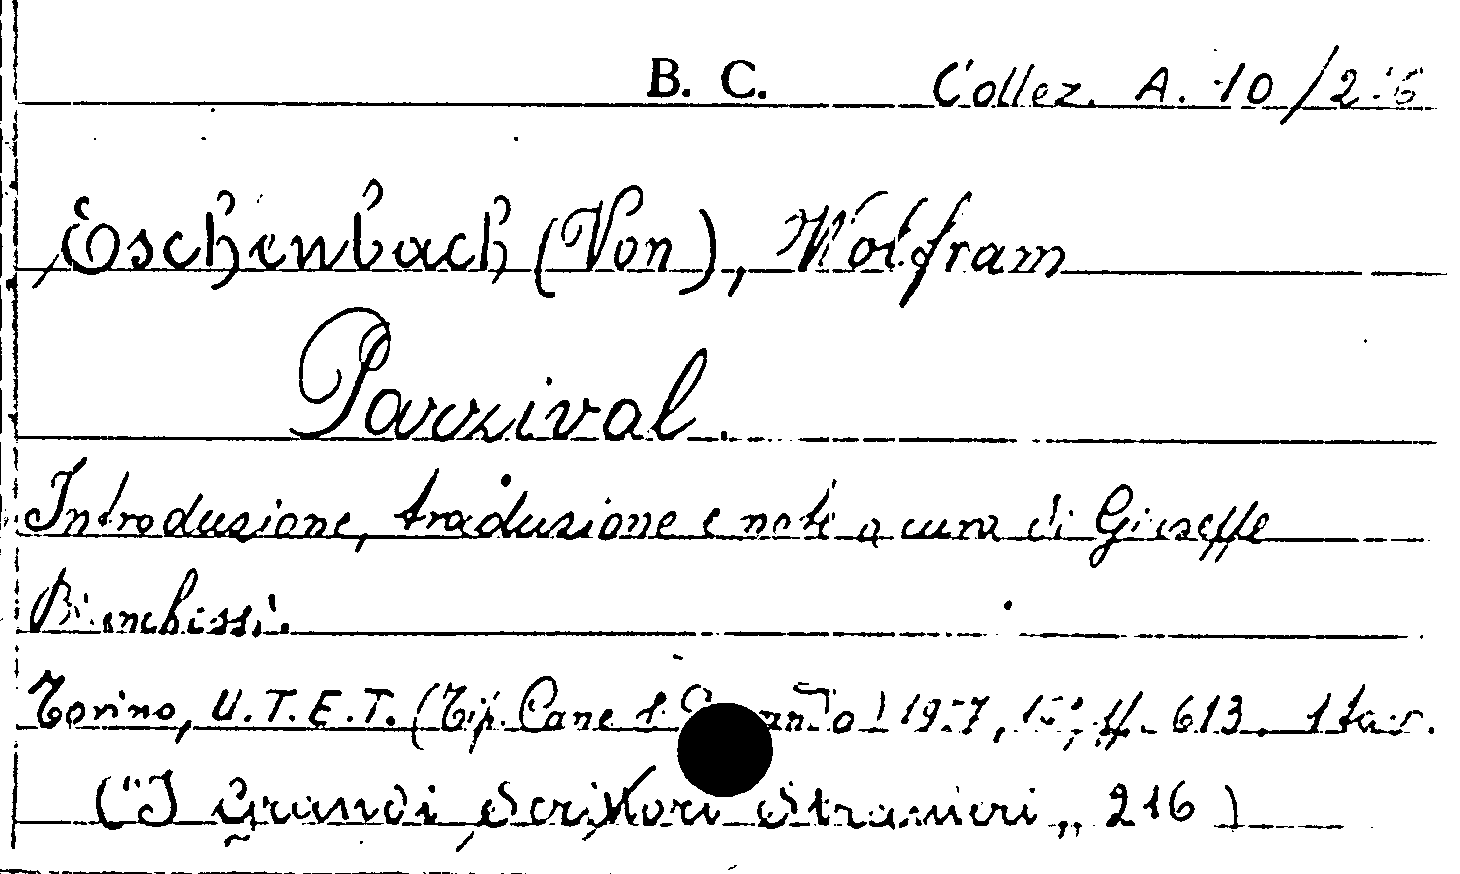 B. C. Collez. A. 10/216
Eschenbach (Von), Wolfram
Parzival.
Introduzione, traduzione e note a cura di Giuseppe
Bianchessi.
Torino, U.T.E.T. (Tip. Cane 1957, pp. 613. 1 tav.
("I Grandi Scrittori Stranieri„, 216)